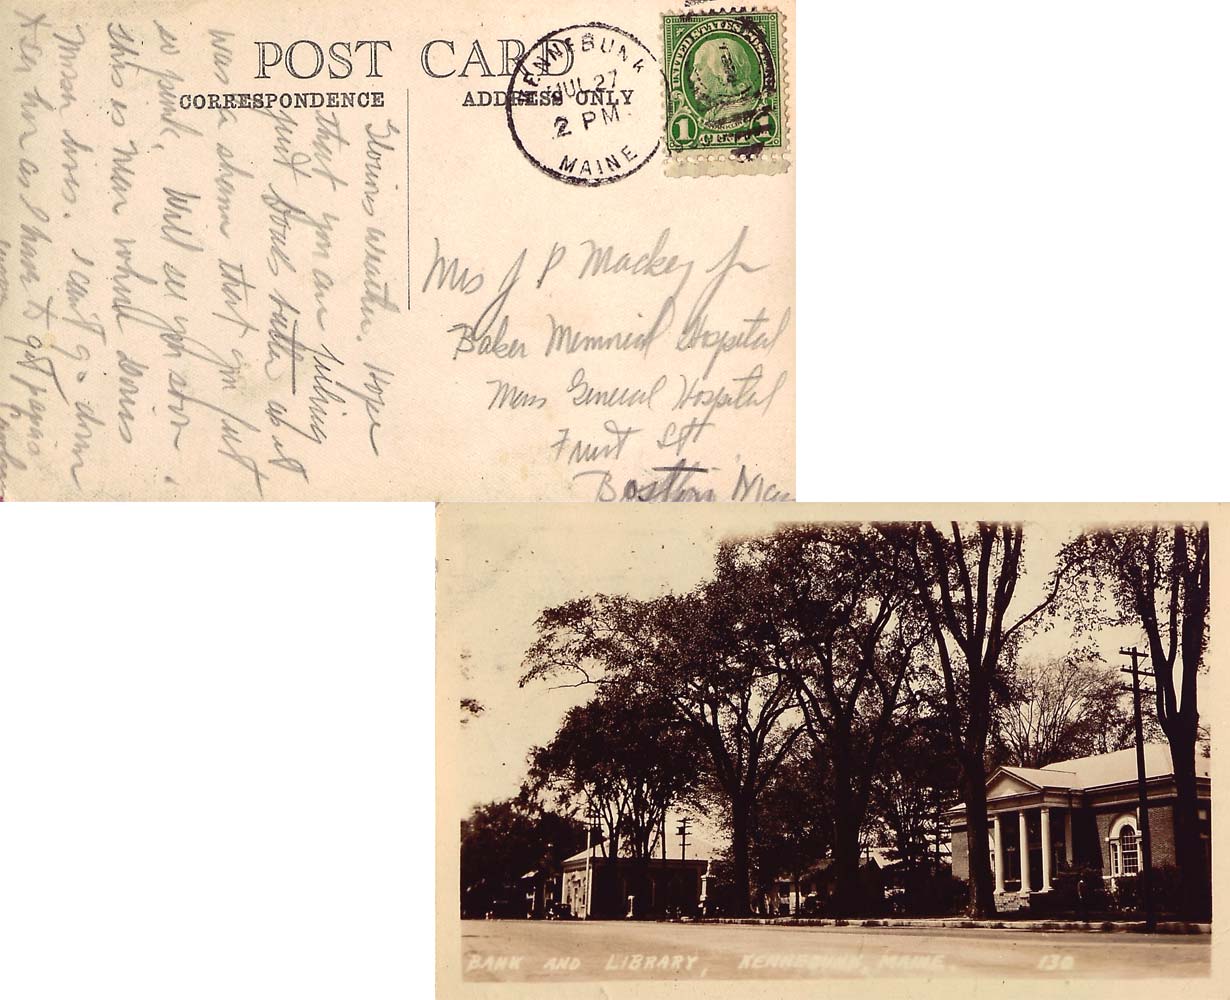 POST CARD
CORRESPONDENCE
ADDRESS ONLY
KENNEBUNK
JUL 27
2 PM
MAINE
UNITED STATES POSTAGE
FRANKLIN
1 CENT 1
Glorious weather. Hope
that you are feeling
just loads better about
was a shame that you
so punk. Will see you soon.
this is near where
Mison lives. I can't go down
her as I have to get
Mrs J P Mackey Jr
Baker Memorial Hospital
Mass General Hospital
Fruit St
Boston Mas
BANK AND LIBRARY, KENNEBUNK, MAINE. 130